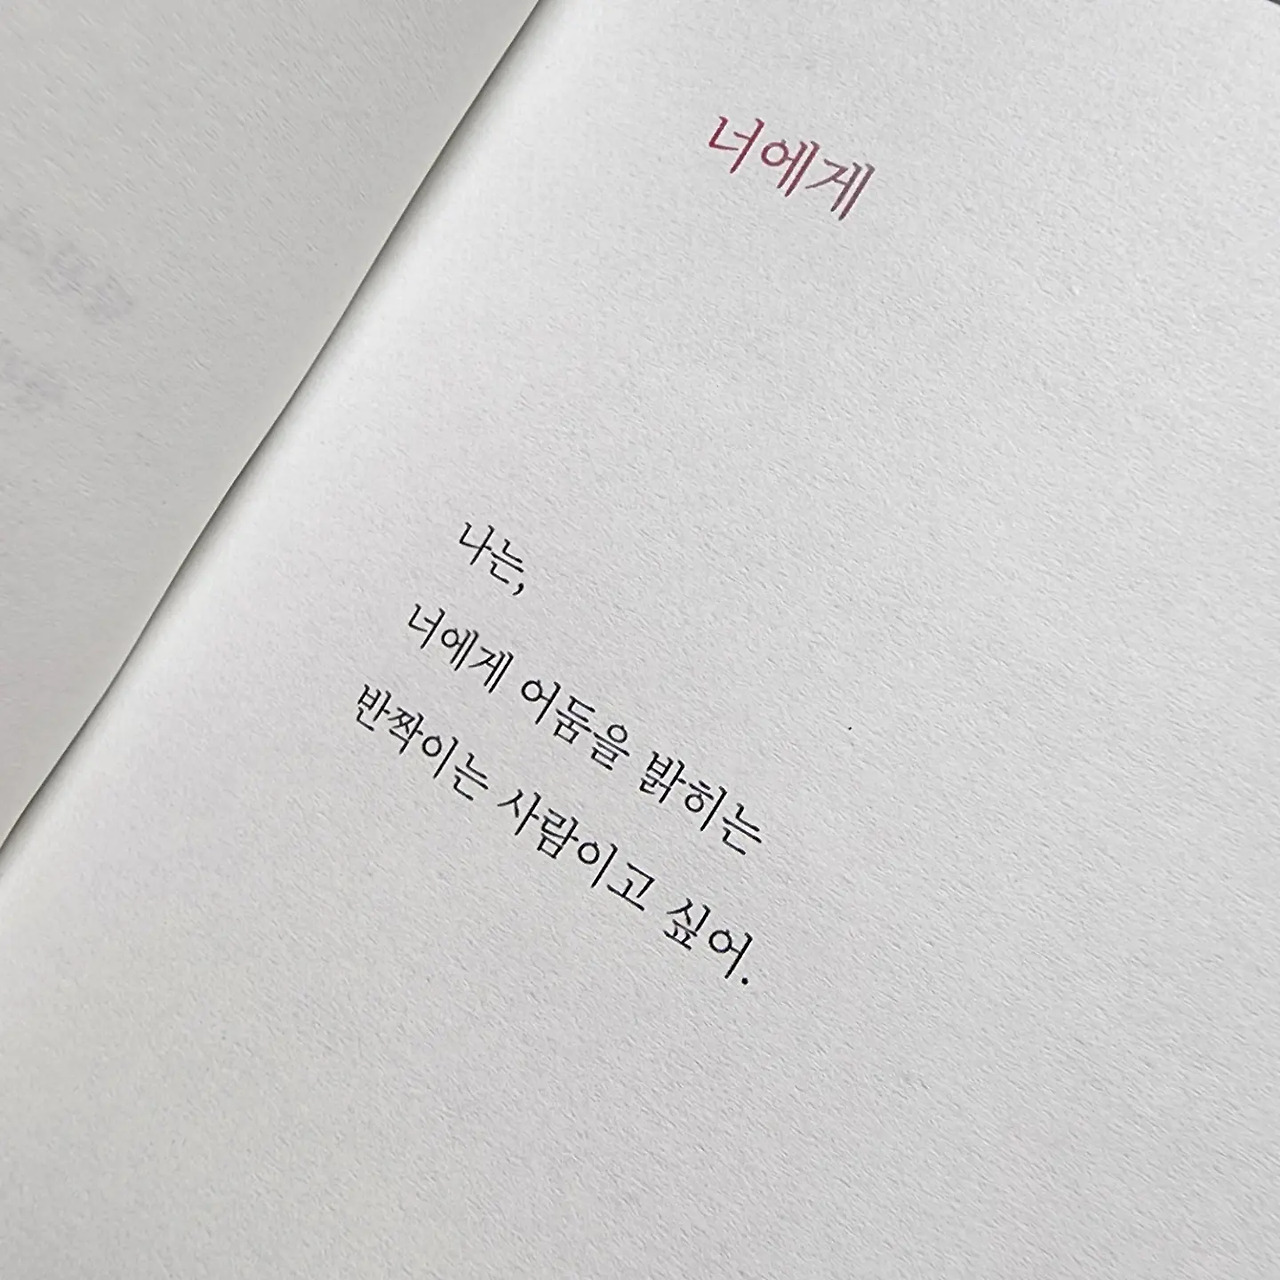 너에게
나는,
너에게 어둠을 밝히는
반짝이는 사람이고 싶어.